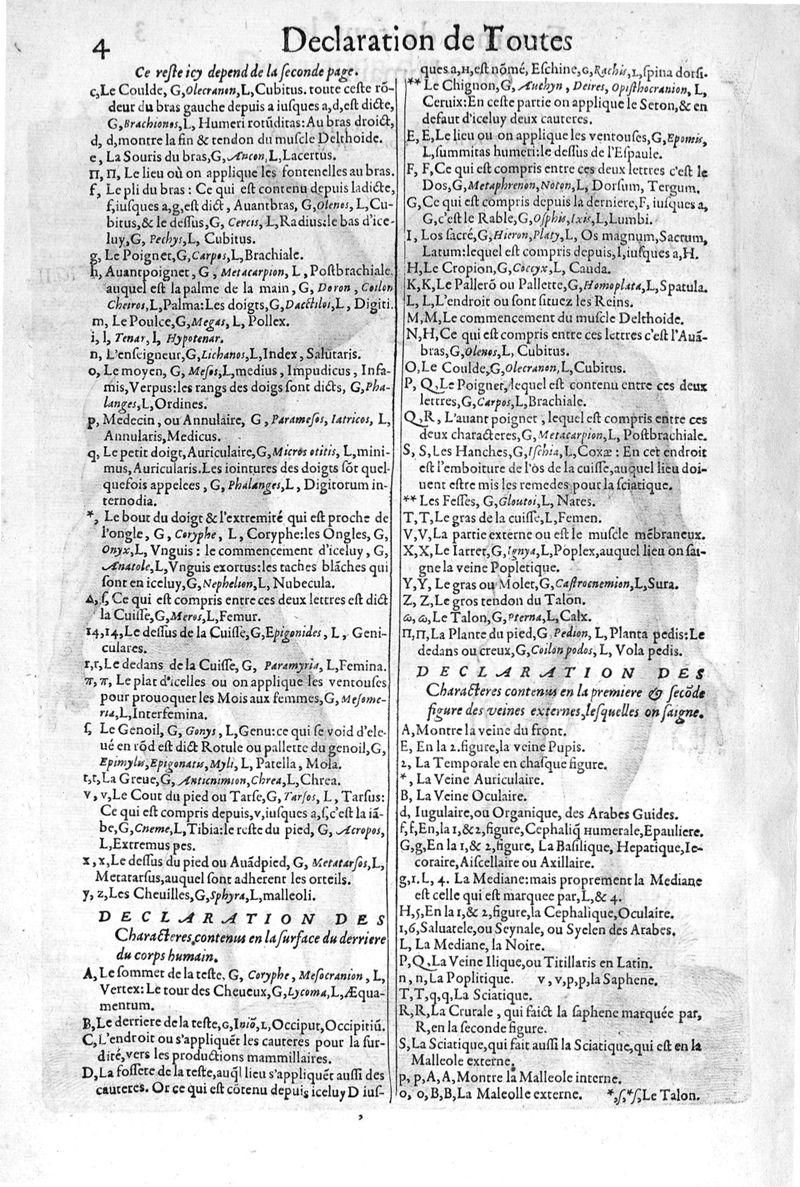 4
Declaration de Toutes
Ce reſte icy depend de la ſeconde page.
c, Le Coulde, G, Olecranon, L, Cubitus. toute ceſte rõ-
deur du bras gauche depuis a iuſques a, d, eſt dicte,
G, Brachionos, L, Humeri rotũditas: Au bras droict,
d, d, montre la fin & tendon du muſcle Delthoide.
e, La Souris du bras, G, Ancon, L, Lacertus.
Π, Π, Le lieu où on applique les fontenelles au bras.
f, Le pli du bras: Ce qui eſt contenu depuis ladicte,
f, iuſques a, g, eſt dict, Auantbras, G, Olenos, L, Cu-
bitus, & le deſſus, G, Cercis, L, Radius: le bas d'ice-
luy, G, Pechys, L, Cubitus.
g, Le Poignet, G, Carpos, L, Brachiale.
h, Auantpoignet, G, Metacarpion, L, Poſtbrachiale,
auquel eſt la palme de la main, G, Doron, Coilon
Cheiros, L, Palma: Les doigts, G, Dactilos, L, Digiti.
m, Le Poulce, G, Megas, L, Pollex.
i, l, Tenar, l, Hypotenar.
n, L'enſeigneur, G, Lichanos, L, Index, Salutaris.
o, Le moyen, G, Meſos, L, medius, Impudicus, Infa-
mis, Verpus: les rangs des doigs ſont dicts, G, Pha-
langes, L, Ordines.
p, Medecin, ou Annulaire, G, Parameſos, Iatricos, L,
Annularis, Medicus.
q, Le petit doigt, Auriculaire, G, Micros otitis, L, mini-
mus, Auricularis. Les iointures des doigts ſõt quel-
quefois appelees, G, Phalanges, L, Digitorum in-
ternodia.
*, Le bout du doigt & l'extremité qui eſt proche de
l'ongle, G, Coryphe, L, Coryphe: les Ongles, G,
Onyx, L, Vnguis: le commencement d'iceluy, G,
Anatole, L, Vnguis exortus: les taches blãches qui
ſont en iceluy, G, Nephelion, L, Nubecula.
Δ, ſ, Ce qui eſt compris entre ces deux lettres eſt dict
la Cuiſſe, G, Meros, L, Femur.
14, 14, Le deſſus de la Cuiſſe, G, Epigonides, L, Geni-
culares.
r, r, Le dedans de la Cuiſſe, G, Paramyria, L, Femina.
π, π, Le plat d'icelles ou on applique les ventouſes
pour prouoquer les Mois aux femmes, G, Meſome-
ria, L, Interfemina.
ſ, Le Genoil, G, Gonys, L, Genu: ce qui ſe void d'ele-
ué en rõd eſt dict Rotule ou pallette du genoil, G,
Epimylus, Epigonatus, Myli, L, Patella, Mola.
t, t, La Greue, G, Anticnimion, Chrea, L, Chrea.
v, v, Le Cout du pied ou Tarſe, G, Tarſos, L, Tarſus:
Ce qui eſt compris depuis, v, iuſques a, ſ, c'eſt la iã-
be, G, Cneme, L, Tibia: le reſte du pied, G, Acropos,
L, Extremus pes.
x, x, Le deſſus du pied ou Auãdpied, G, Metatarſos, L,
Metatarſus, auquel ſont adherent les orteils.
y, z, Les Cheuilles, G, Sphyra, L, malleoli.
DECLARATION DES
Characteres contenus en la ſurface du derriere
du corps humain.
A, Le ſommet de la teſte, G, Coryphe, Meſocranion, L,
Vertex: Le tour des Cheueux, G, Lycoma, L, Æqua-
mentum.
B, Le derriere de la teſte, G, Iniõ, L, Occiput, Occipitiũ.
C, L'endroit ou s'appliquẽt les cauteres pour la ſur-
dité, vers les productions mammillaires.
D, La foſſete de la teſte, auq̃l lieu s'appliquẽt auſſi des
cauteres. Or ce qui eſt cõtenu depuis iceluy D iuſ-
ques a, H, eſt nõmé, Eſchine, G, Rachis, L, ſpina dorſi.
** Le Chignon, G, Authyn, Deires, Opiſthocranion, L,
Ceruix: En ceſte partie on applique le Seton, & en
defaut d'iceluy deux cauteres.
E, E, Le lieu ou on applique les ventouſes, G, Epomis,
L, ſummitas humeri: le deſſus de l'Eſpaule.
F, F, Ce qui eſt compris entre ces deux lettres c'eſt le
Dos, G, Metaphrenon, Noton, L, Dorſum, Tergum.
G, Ce qui eſt compris depuis la derniere, F, iuſques a,
G, c'eſt le Rable, G, Oſphis, Ixis, L, Lumbi.
I, Los ſacré, G, Hieron, Platy, L, Os magnum, Sacrum,
Latum: lequel eſt compris depuis, I, iuſques a, H.
H, Le Cropion, G, Coccyx, L, Cauda.
K, K, Le Pallerõ ou Pallette, G, Homoplata, L, Spatula.
L, L, L'endroit ou ſont ſituez les Reins.
M, M, Le commencement du muſcle Delthoide.
N, H, Ce qui eſt compris entre ces lettres c'eſt l'Auã-
bras, G, Olenos, L, Cubitus.
O, Le Coulde, G, Olecranon, L, Cubitus.
P, Q, Le Poignet, lequel eſt contenu entre ces deux
lettres, G, Carpos, L, Brachiale.
Q, R, L'auant poignet, lequel eſt compris entre ces
deux characteres, G, Metacarpion, L, Poſtbrachiale.
S, S, Les Hanches, G, Iſchia, L, Coxæ: En cet endroit
eſt l'emboiture de l'òs de la cuiſſe, auquel lieu doi-
uent eſtre mis les remedes pour la ſciatique.
** Les Feſſes, G, Gloutoi, L, Nates.
T, T, Le gras de la cuiſſe, L, Femen.
V, V, La partie externe ou eſt le muſcle mẽbraneux.
X, X, Le Iarret, G, Ignya, L, Poplex, auquel lieu on ſai-
gne la veine Popletique.
Y, Y, Le gras ou Molet, G, Gaſtrocnemion, L, Sura.
Z, Z, Le gros tendon du Talon.
ω, ω, Le Talon, G, Pterna, L, Calx.
Π, Π, La Plante du pied, G, Pedion, L, Planta pedis: Le
dedans ou creux, G, Coilon podos, L, Vola pedis.
DECLARATION DES
Characteres contenus en la premiere & ſecõde
figure des veines externes, leſquelles on ſaigne.
A, Montre la veine du front.
E, En la 2. figure, la veine Pupis.
2, La Temporale en chaſque figure.
*, La Veine Auriculaire.
B, La Veine Oculaire.
d, Iugulaire, ou Organique, des Arabes Guides.
f, f, En, la 1, & 2, figure, Cephaliq̃ Humerale, Epauliere.
G, g, En la 1, & 2, figure, La Baſilique, Hepatique, Ie-
coraire, Aiſcellaire ou Axillaire.
g, 1. L, 4. La Mediane: mais proprement la Mediane
eſt celle qui eſt marquee par, L, & 4.
H, 5, En la 1, & 2, figure, la Cephalique, Oculaire.
1, 6, Saluatele, ou Seynale, ou Syelen des Arabes.
L, La Mediane, la Noire.
P, Q, La Veine Ilique, ou Titillaris en Latin.
n, n, La Poplitique. v, v, p, p, la Saphene.
T, T, q, q, La Sciatique.
R, R, La Crurale, qui faict la ſaphene marquée par,
R, en la ſeconde figure.
S, La Sciatique, qui fait auſſi la Sciatique, qui eſt en la
Malleole externe.
p, p, A, A, Montre la Malleole interne.
o, o, B, B, La Maleolle externe. *, ſ, *ſ, Le Talon.